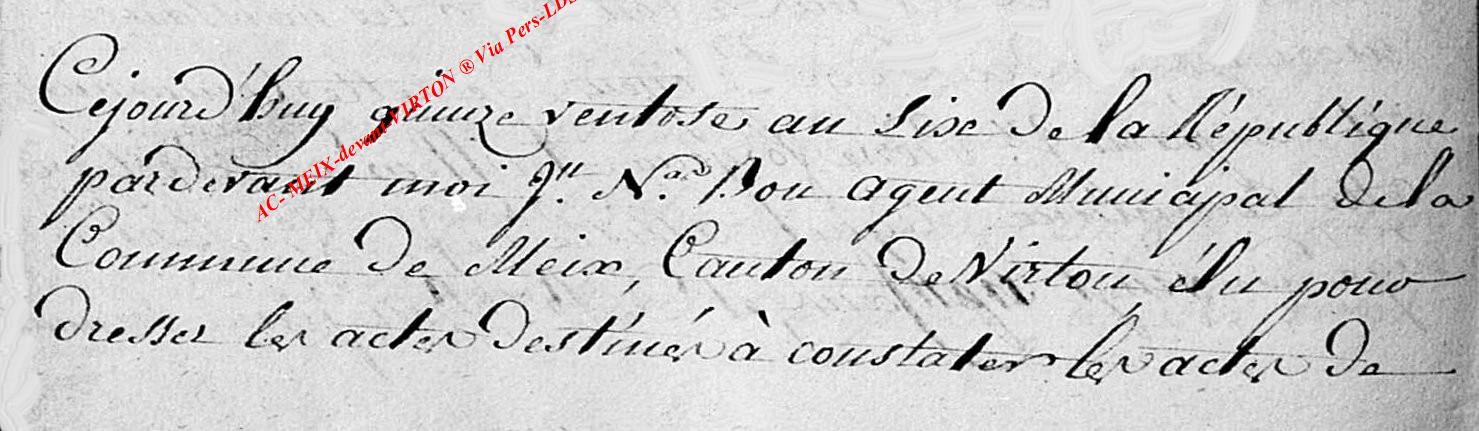 AC-MEIX-devant-VIRTON ® Via Pers-LDS
Cejourd'huy quinze ventose an Six De la République
pardevant moi Jn. Nas Bon agent Municipal de la
Commune De Meix, Canton De Virton élu pour
dresser les actes Destinés à constater les actes De